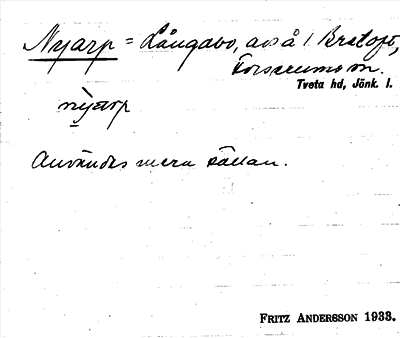 Nyarp = Långabo, avs å 1 Bratoft,
Forserums sn.
Tveta hd, Jönk. l.
nyarp
Användes mera sällan.
FRITZ ANDERSSON 1933.